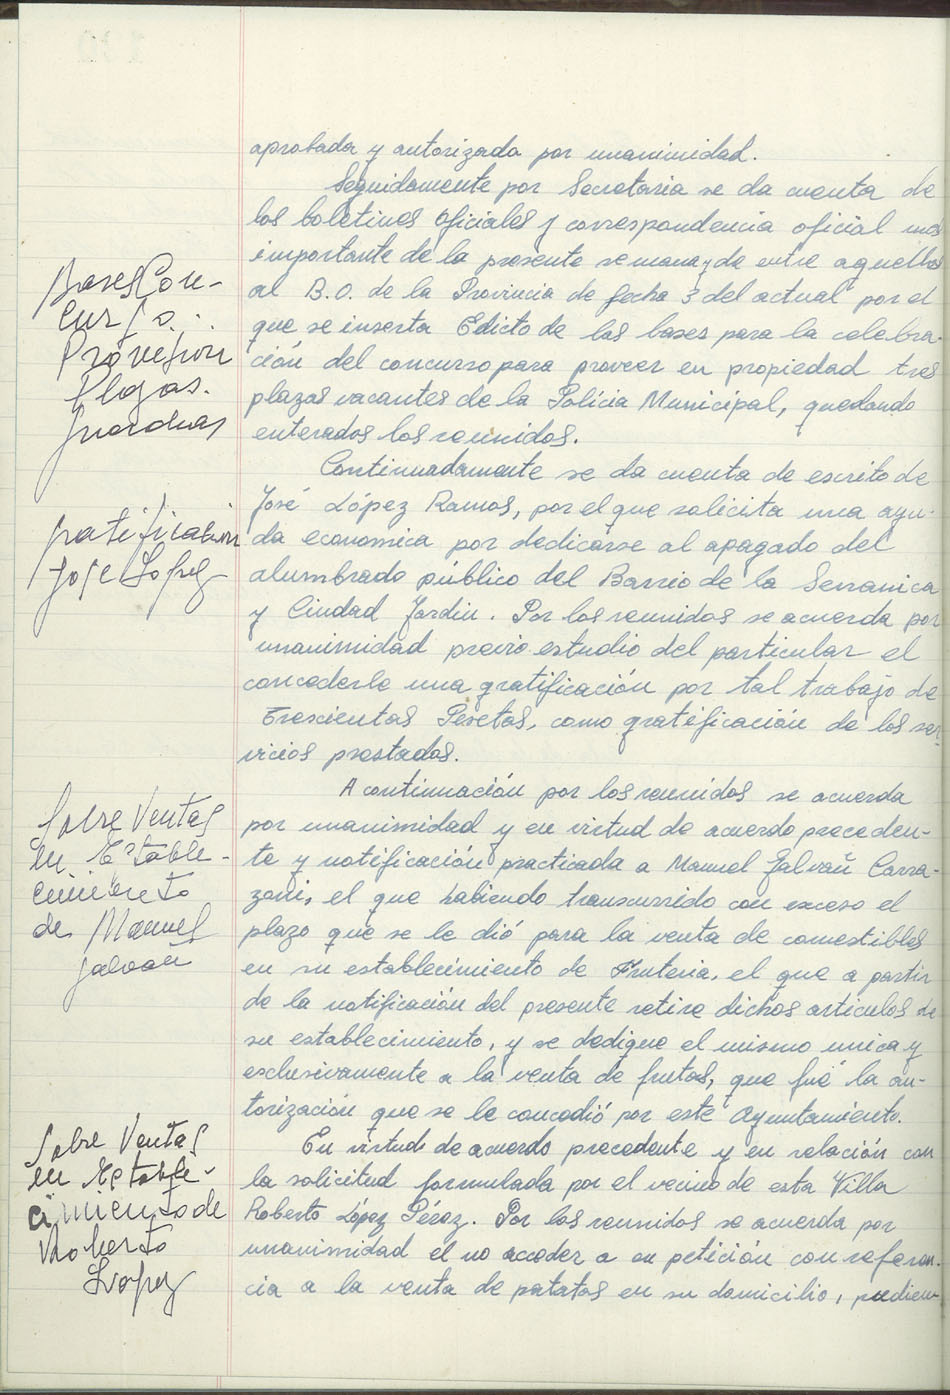 aprobada y autorizada por unanimidad.
Seguidamente por Secretaria se da cuenta de
los boletines oficiales y correspondencia oficial mas
importante de la presente semana y de entre aquellos
Bases Con-
curso.:
Provesion
Plazas.
Guardias
al B.O. de la Provincia de fecha 3 del actual por el
que se inserta Edicto de las bases para la celebra-
ción del concurso para proveer en propiedad tres
plazas vacantes de la Policia Municipal, quedando
enterados los reunidos.
Continuadamente se da cuenta de escrito de
Gratificación
Jose Lopez
José López Ramos, por el que solicita una ayu-
da economica por dedicarse al apagado del
alumbrado público del Barrio de la Serranica
y Ciudad Jardin. Por los reunidos se acuerda por
unanimidad previo estudio del particular el
concederle una gratificación por tal trabajo de
Trescientas Pesetas, como gratificación de los ser-
vicios prestados.
Sobre Ventas
en Estable-
cimiento
de Manuel
Galvañ
A continuación por los reunidos se acuerda
por unanimidad y en virtud de acuerdo preceden-
te y notificación practicada a Manuel Galvañ Carra-
zoni, el que habiendo transcurrido con exceso el
plazo que se le dió para la venta de comestibles
en su establecimiento de Fruteria, el que a partir
de la notificación del presente retire dichos articulos de
su establecimiento, y se dedique el mismo unica y
exclusivamente a la venta de frutas, que fué la au-
torización que se le concedió por este Ayuntamiento.
Sobre Ventas
en Estable-
cimiento de
Roberto
Lopez
En virtud de acuerdo precedente y en relación con
la solicitud formulada por el vecino de esta Villa
Roberto López Pérez. Por los reunidos se acuerda por
unanimidad el no acceder a su petición con referen-
cia a la venta de patatas en su domicilio, pudien-